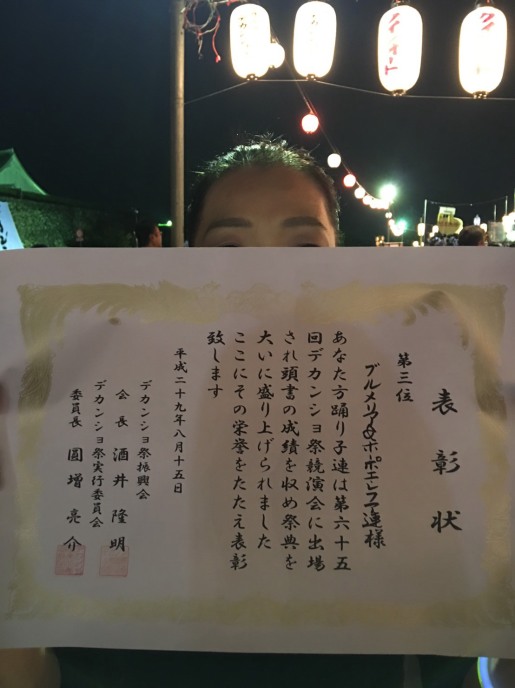 表彰状
第三位
プルメリア&ホポエレフア連様
あなた方踊り子連は第六十五
回デカンショ祭競演会に出場
され頭書の成績を収め祭典を
大いに盛り上げられました
ここにその栄誉をたたえ表彰
致します
平成二十九年八月十五日
デカンショ祭振興会
会長 酒井隆明
デカンショ祭実行委員会
委員長 圓増亮介